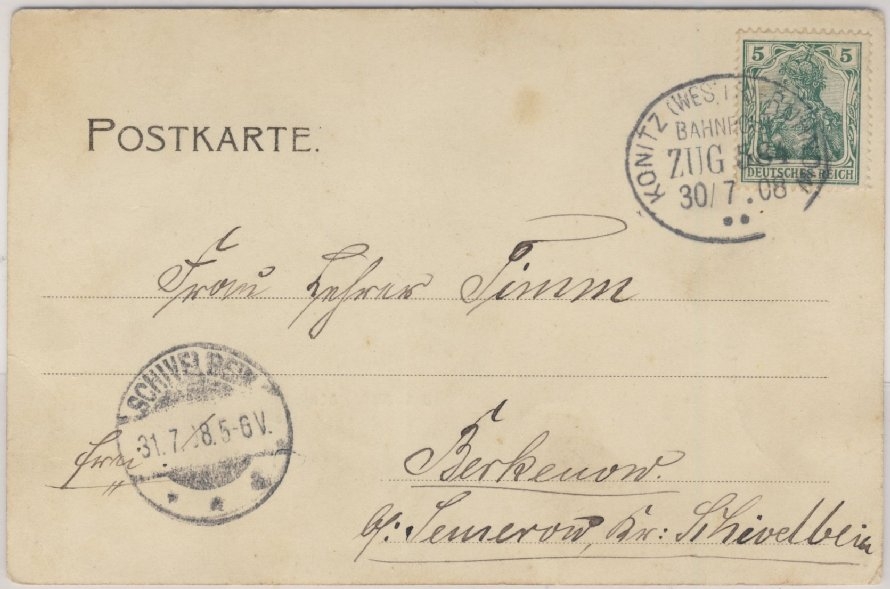 5 5
DEUTSCHES REICH
KONITZ (WESTPR)
BAHNPOST
ZUG
30/7.08
POSTKARTE.
Frau Lehrer Timm
SCHIVELBEIN
31.7. 8.5-6V.
frei
Berkenow.
b/: Semerow, Kr: Schivelbein